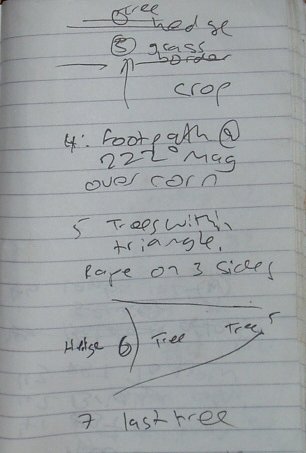 tree
hedge
3 grass
border
crop
4: Footpath @
222° Mag
over corn
5 Trees within
triangle.
Rape on 3 sides
Hedge 6 Tree Trees
7 last tree